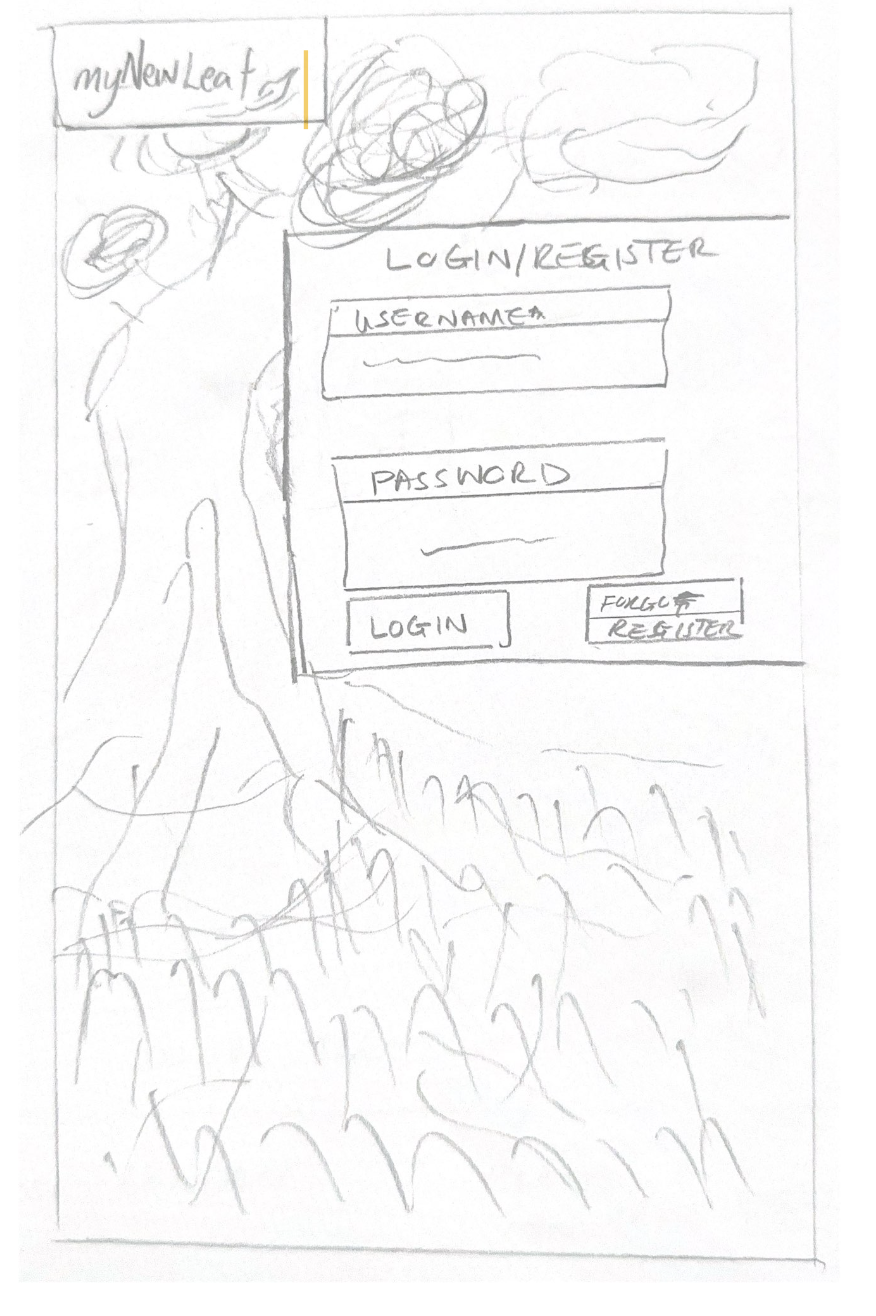 myNewLeaf
LOGIN/REGISTER
USERNAME*
PASSWORD
LOGIN
FORGOT
REGISTER